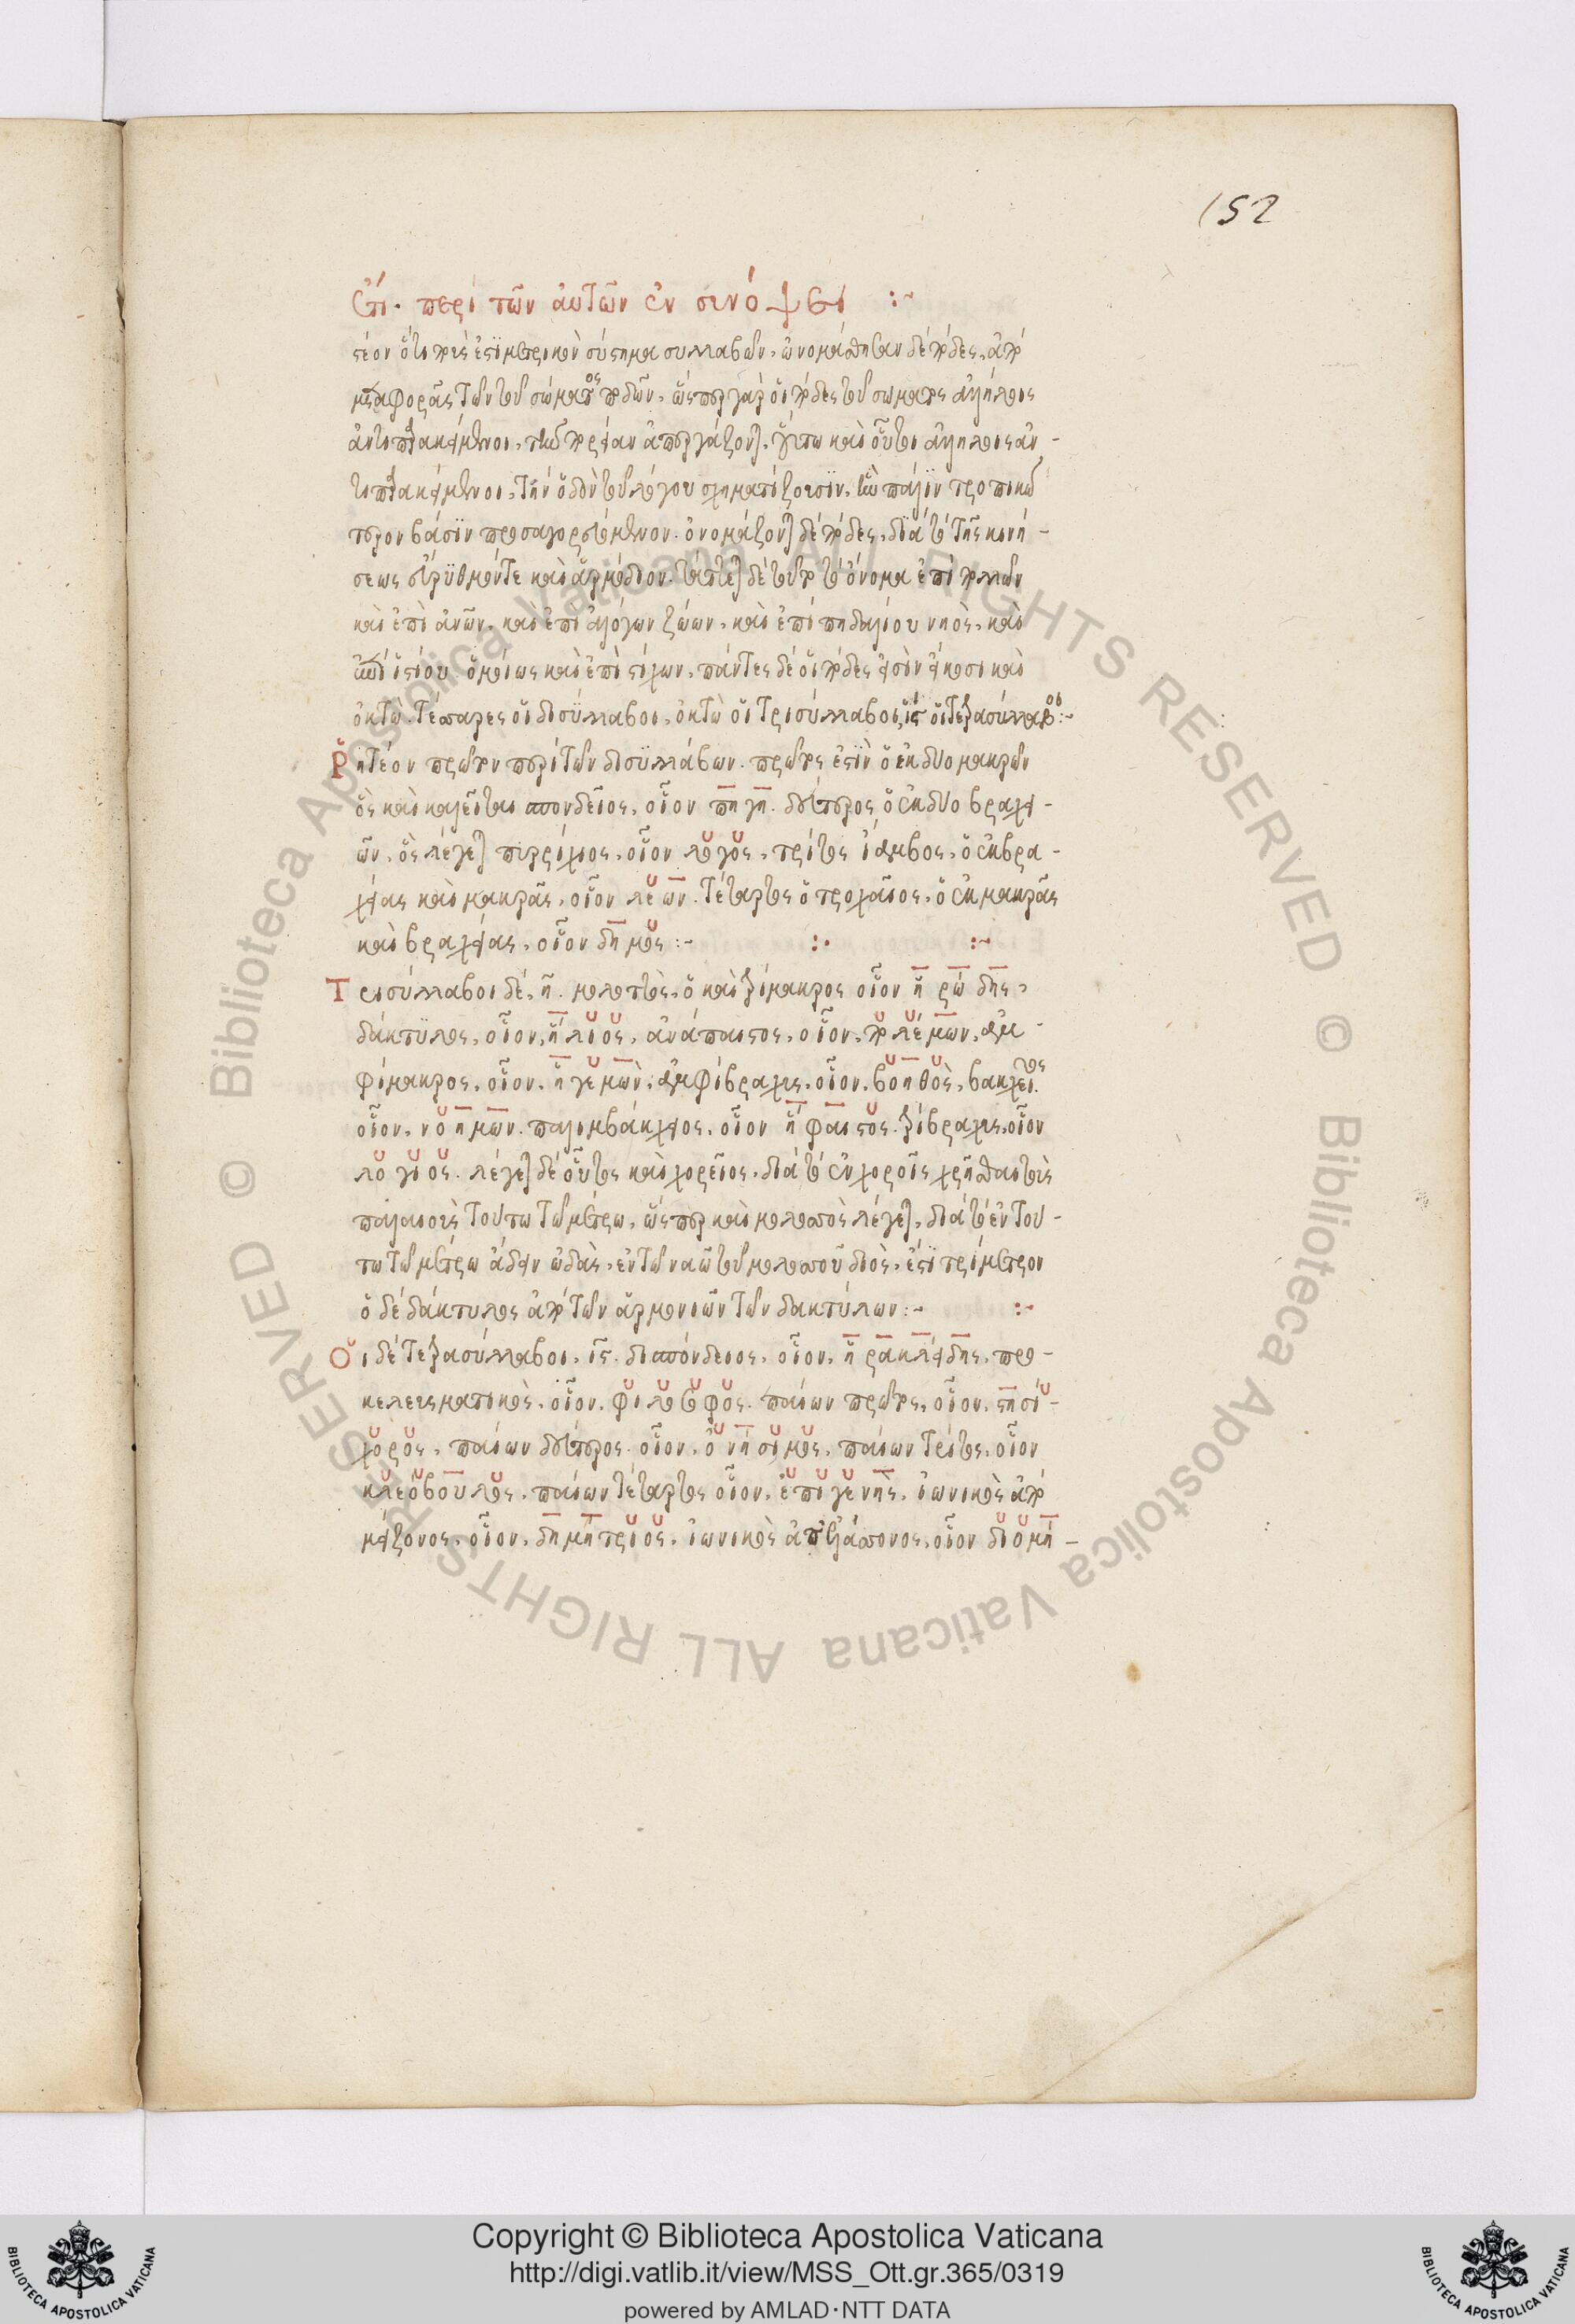 152
Ἔτι περὶ τῶν αὐτῶν ἐν συνόψει :~
στέον ὅτι ποῦς ἐστι μετρικὸν σύστημα συλλαβῶν. ὠνομάσθησαν δὲ πόδες, ἀπὸ
μεταφορᾶς τῶν τοῦ σώματος ποδῶν. ὥσπερ γὰρ οἱ πόδες τοῦ σώματος ἀλλήλοις
ἀντιπαρακείμενοι, τὴν πορείαν ἀπεργάζονται. οὕτω καὶ οὗτοι ἀλλήλοις ἀν-
τιπαρακείμενοι, τὴν ὁδὸν τοῦ λόγου σχηματίζουσιν. ἣν πάλιν τροπικώ
τερον βάσιν προσαγορεύομεν. ὀνομάζονται δὲ πόδες, διὰ τὸ τῆς κινή-
σεως εὔρυθμόν τε καὶ ἁρμόδιον. τάττεται δὲ τοῦτο τὸ ὄνομα ἐπὶ πολλῶν
καὶ ἐπὶ ἀνων. καὶ ἐπὶ ἀλόγων ζώων. καὶ ἐπὶ πηδαλίου νηὸς. καὶ
ἐπὶ ἱστίου. ὁμοίως καὶ ἐπὶ στίχων. πάντες δὲ οἱ πόδες εἰσὶν εἴκοσι καὶ
ὀκτὼ. τέσσαρες οἱ δισύλλαβοι. ὀκτὼ οἱ τρισύλλαβοι, ις οἱ τετρασύλλαβοι :~
Ῥητέον πρῶτον περὶ τῶν δισυλλάβων. πρῶτος ἐστὶν ὁ ἐκ δυο μακρῶν
ὃς καὶ καλεῖται σπονδεῖος, οἷον πηγη. δεύτερος ὁ ἐκ δυο βραχει-
ῶν. ὃς λέγεται πυρρίχιος, οἷον λόγος. τρίτος ἴαμβος. ὁ ἐκ βρα-
χείας καὶ μακρᾶς. οἷον λέων. τέταρτος ὁ τροχαῖος. ὁ ἐκ μακρᾶς
καὶ βραχείας. οἷον δημος :~ :· :~
Τρισύλλαβοι δὲ, η. μολοττὸς. ὁ καὶ τρίμακρος οἷον ἡρώδης,
δάκτυλος. οἷον. ἥλιος. ἀνάπαιστος. οἷον. πολέμων. ἀμ-
φίμακρος. οἷον. ἡγεμὼν. ἀμφίβραχυς. οἷον. βοηθὸς. βακχεῖος.
οἷον. νοήμων. παλιμβάκχειος. οἷον ἥφαιστος. τρίβραχυς. οἷον
λόγιος. λέγεται δὲ οὗτος καὶ χορεῖος. διὰ τὸ ἐν χοροῖς χρῆσθαι τοὺς
παλαιοὺς τούτω τῶ μέτρω. ὥσπερ καὶ μολοττὸς λέγεται. διὰ τὸ ἐν τού-
τω τῶ μέτρω ἄδειν ὠδὰς. ἐν τῶ ναῶ τοῦ μολοττοῦ διὸς. ἔστι τρίμετρον
ὁ δὲ δάκτυλος ἀπὸ τῶν ἁρμονιῶν τῶν δακτύλων :~ :~
Οἱ δὲ τετρασύλλαβοι. ις. δισπόνδειος. οἷον. ἡρακλείδης. προ-
κελευσματικὸς. οἷον. φιλόσοφος. παίων πρῶτος. οἷον. στησί-
χορος. παίων δεύτερος. οἷον. ὀνήσιμος. παίων τρίτος. οἷον
κλεόβουλος. παίων τέταρτος οἷον. ἐπιγενὴς. ἰωνικὸς ἀπὸ
μείζονος. οἷον. δημήτριος. ἰωνικὸς ἀπ' ἐλάσσονος. οἷον διομή-
Copyright © Biblioteca Apostolica Vaticana
http://digi.vatlib.it/view/MSS_Ott.gr.365/0319
powered by AMLAD·NTT DATA